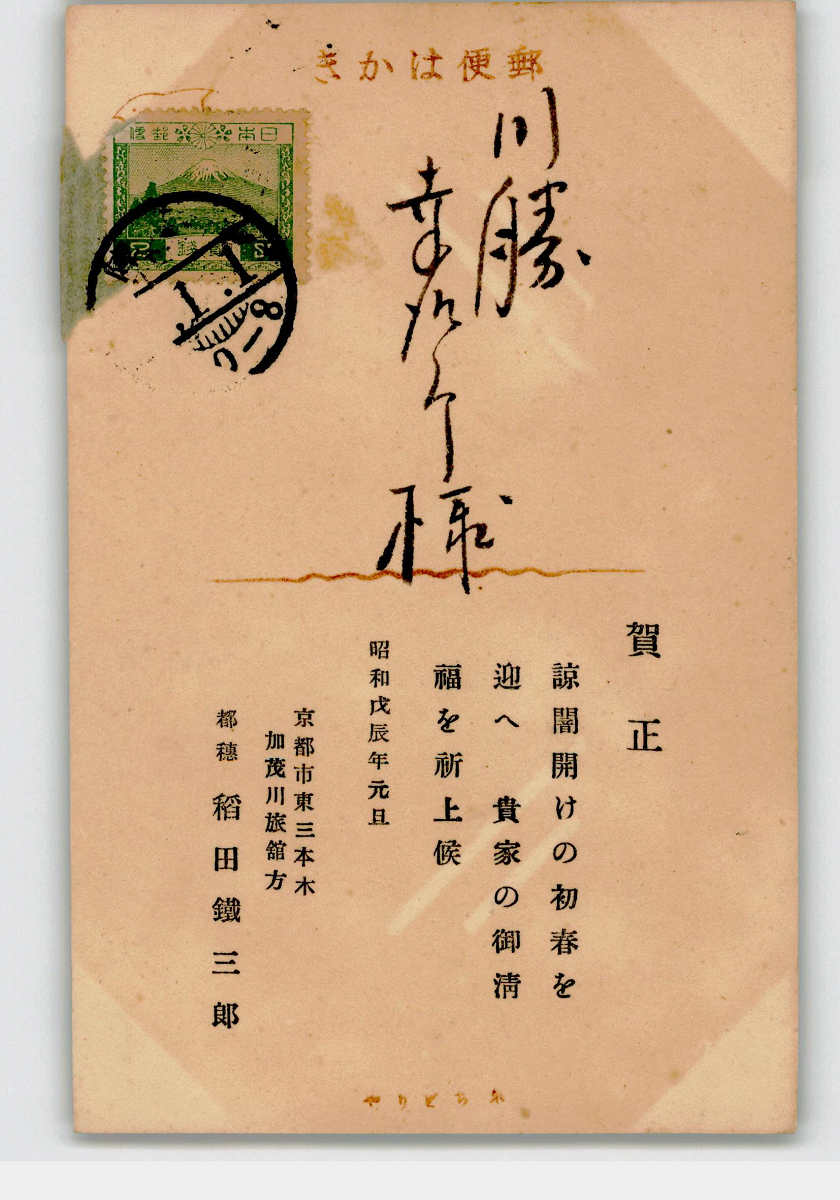 郵便はかき
日本郵便
貳錢
1.1
川勝
様
賀正
諒闇開けの初春を
迎へ 貴家の御清
福を祈上候
昭和戊辰年元旦
京都市東三本木
加茂川旅舘方
都穗 稻田鐵三郎